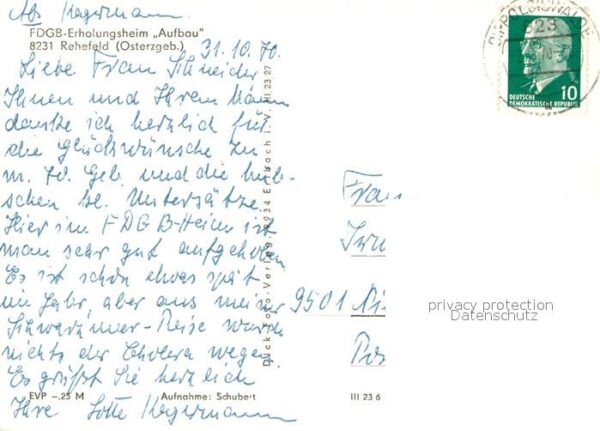 Abs. Hegermann
FDGB-Erholungsheim „Aufbau"
8231 Rehefeld (Osterzgeb.)
31.10.70.
Liebe Frau Schneider
Ihnen und Ihrem Mann
danke ich herzlich für
die Glückwünsche zu
m. 70. Geb und die hüb-
schen kl. Untersätze.
Hier im FDGB-Heim ist
man sehr gut aufgehoben
Es ist schon etwas spät
im Jahr, aber aus meiner
Schwarzmeer-Reise wurde
nichts der Cholera wegen
Es grüßt Sie herzlich
Ihre Lotte Hegermann
EVP –.25 M
Aufnahme: Schubert
III 23 6
823
DEUTSCHE
DEMOKRATISCHE REPUBLIK
10
Frau
9501
privacy protection
Datenschutz